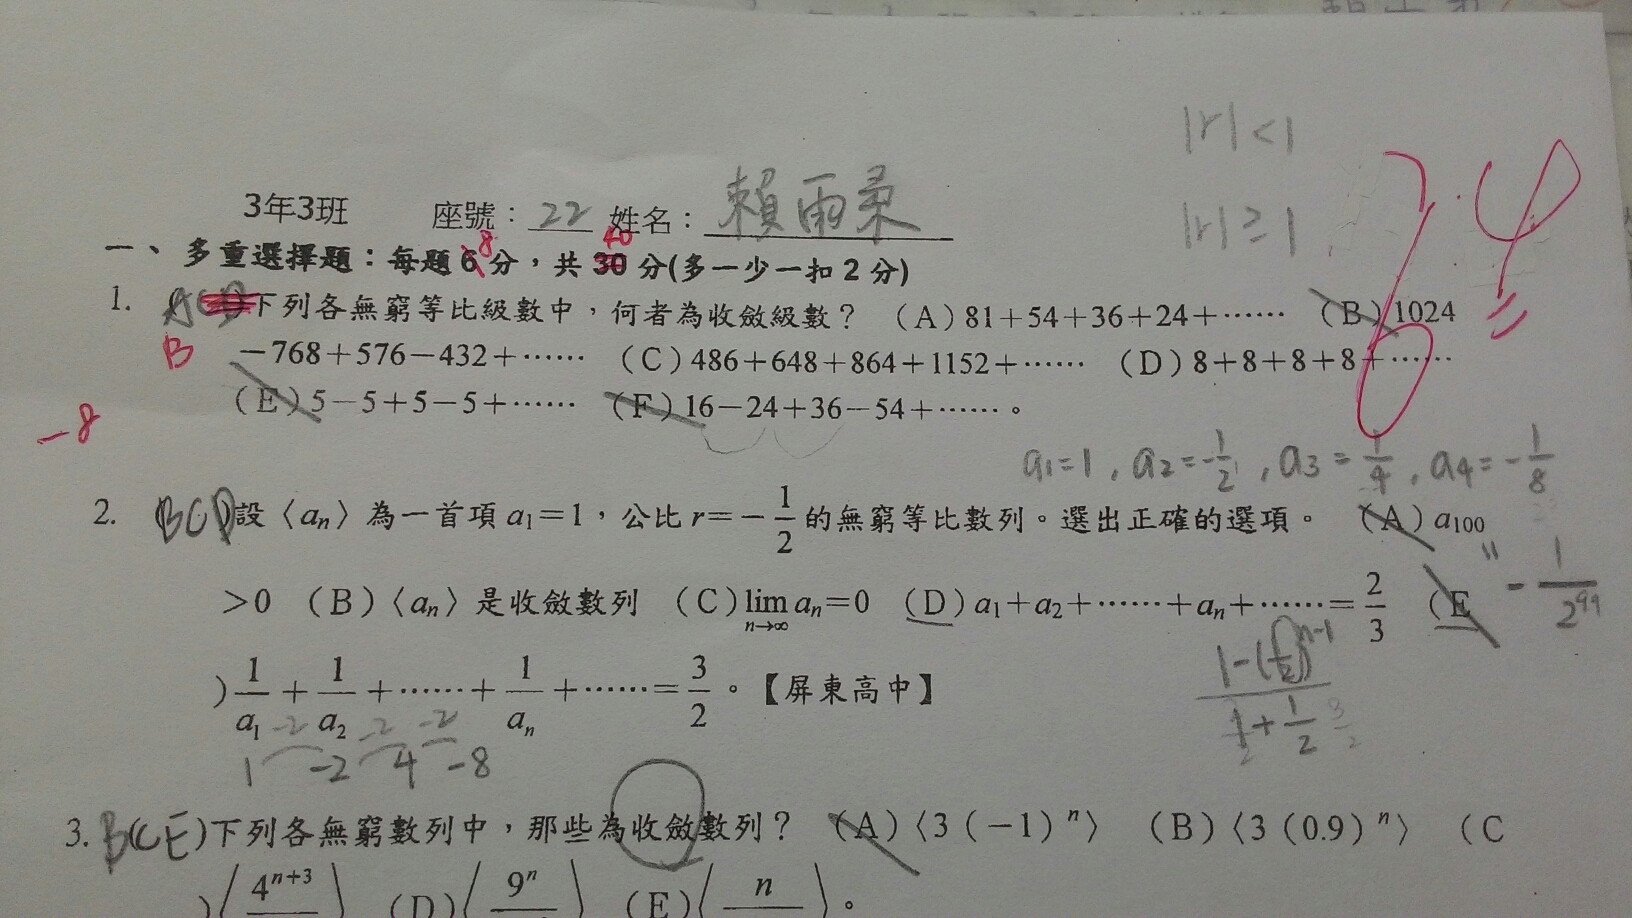 |r|<1
|r|≥1
74
3年3班 座號：22 姓名：賴雨柔
一、多重選擇題：每題6 8分，共30 40分(多一少一扣2分)
1. ACD下列各無窮等比級數中，何者為收斂級數？ （A）81＋54＋36＋24＋…… （B）1024
B －768＋576－432＋…… （C）486＋648＋864＋1152＋…… （D）8＋8＋8＋8＋……
（E）5－5＋5－5＋…… （F）16－24＋36－54＋……。
-8
a1=1，a2=-1/2，a3=1/4，a4=-1/8
2. BCD設〈an〉為一首項a1＝1，公比r＝－1/2的無窮等比數列。選出正確的選項。 （A）a100
＞0 （B）〈an〉是收斂數列 （C）lim n→∞ an＝0 （D）a1＋a2＋……＋an＋……＝2/3 （E
= -1/2^99
）1/a1＋1/a2＋……＋1/an＋……＝3/2。【屏東高中】
-2 -2 -2
1 -2 4 -8
3. BCE)下列各無窮數列中，那些為收斂數列？ （A）〈3（－1）n〉 （B）〈3（0.9）n〉 （C
）〈4n+3 〉 （D）〈9n 〉 （E）〈n 〉。